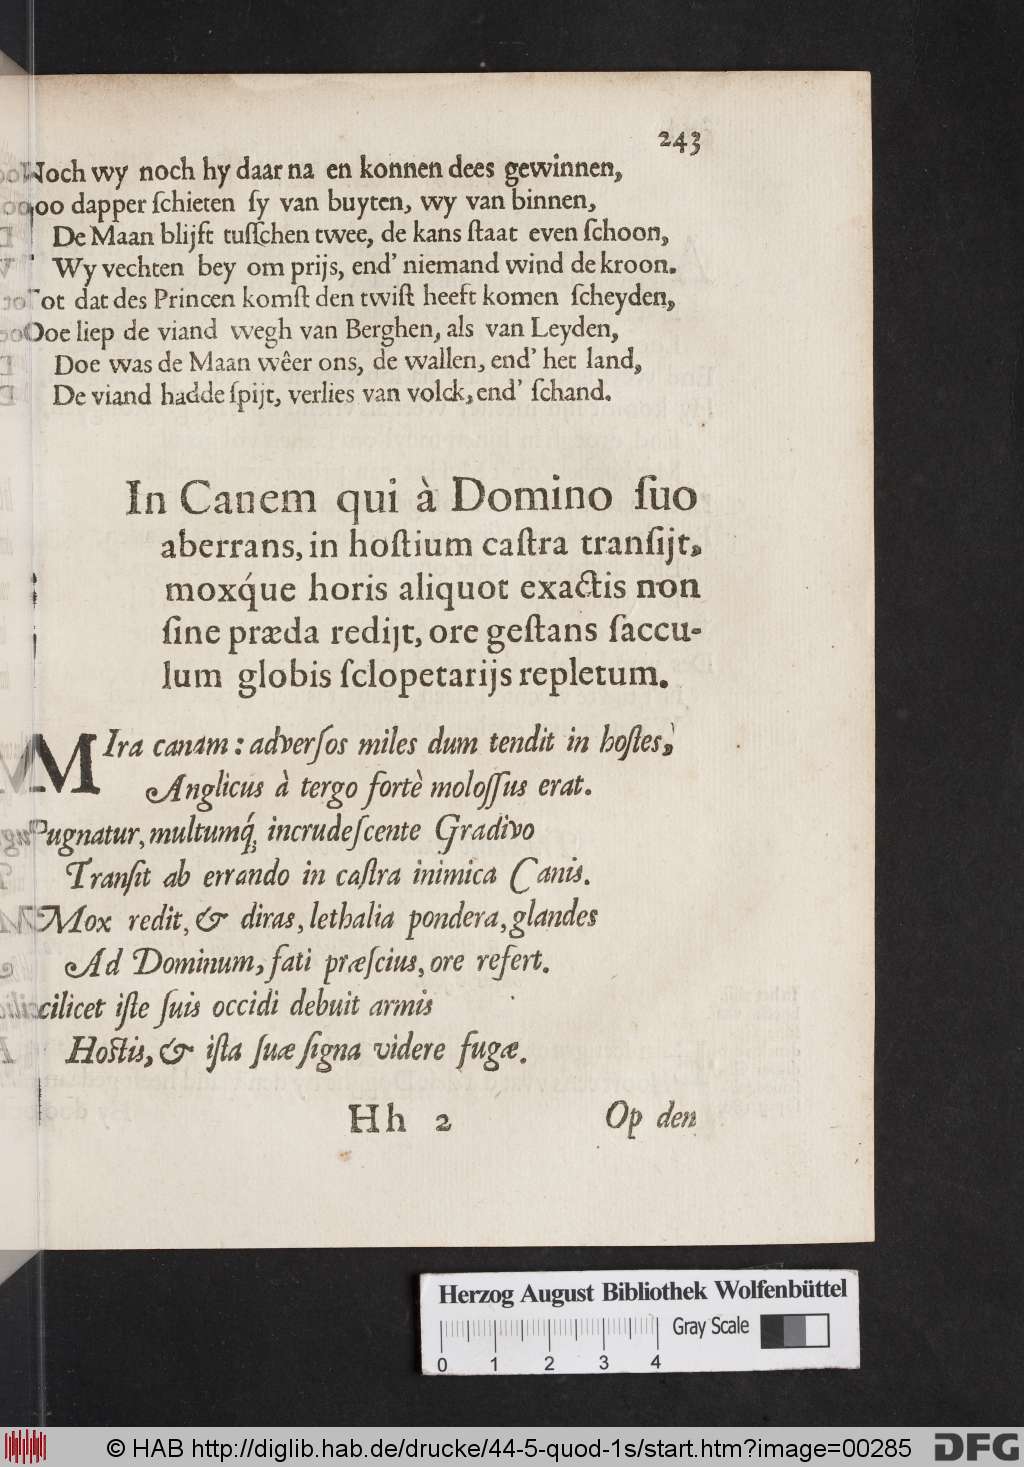 243
Noch wy noch hy daar na en konnen dees gewinnen,
oo dapper ſchieten ſy van buyten, wy van binnen,
De Maan blijft tuſſchen twee, de kans ſtaat even ſchoon,
Wy vechten bey om prijs, end' niemand wind de kroon.
Tot dat des Princen komſt den twiſt heeft komen ſcheyden,
Doe liep de viand wegh van Berghen, als van Leyden,
Doe was de Maan wêer ons, de wallen, end' het land,
De viand hadde ſpijt, verlies van volck, end' ſchand.
In Canem qui à Domino ſuo
aberrans, in hoſtium caſtra tranſijt,
moxq́ue horis aliquot exactis non
ſine præda redijt, ore geſtans ſaccu-
lum globis ſclopetarijs repletum.
MIra canam: adverſos miles dum tendit in hoſtes,
Anglicus à tergo fortè moloſſus erat.
Pugnatur, multumq́; incrudeſcente Gradivo
Tranſit ab errando in caſtra inimica Canis.
Mox redit, & diras, lethalia pondera, glandes
Ad Dominum, fati præſcius, ore refert.
cilicet iſte ſuis occidi debuit armis
Hoſtis, & iſta ſuæ ſigna videre fugæ.
Hh 2 Op den
Herzog August Bibliothek Wolfenbüttel
Gray Scale
0 1 2 3 4
© HAB http://diglib.hab.de/drucke/44-5-quod-1s/start.htm?image=00285 DFG